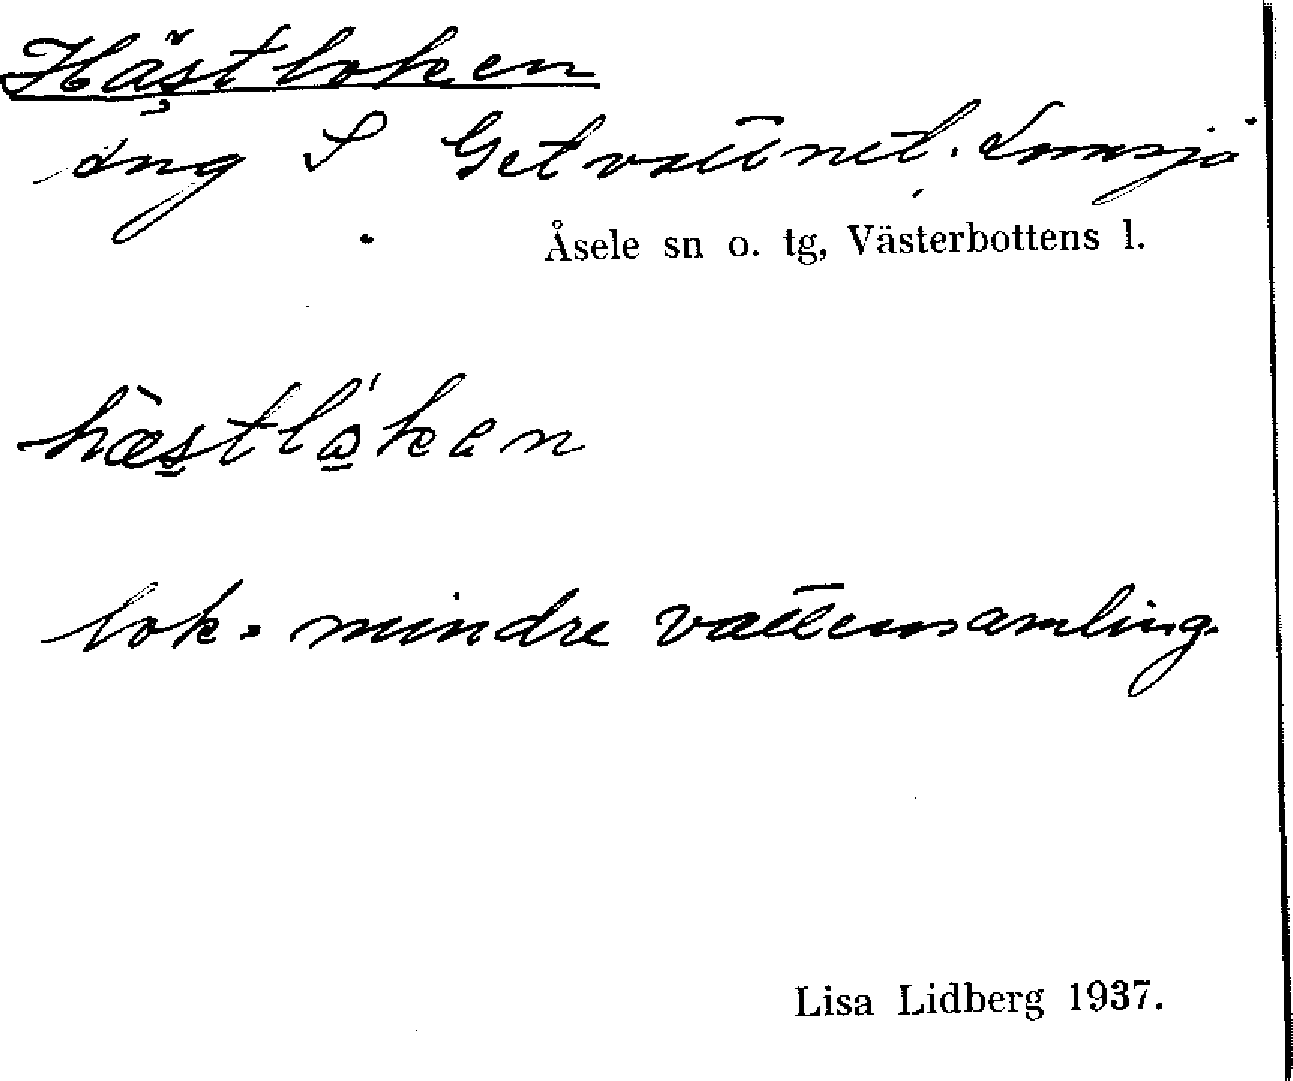 Hästloken
äng S Getvattnet. Lomsjö
Åsele sn o. tg, Västerbottens l.
hæ̀stlə́kən
lok = mindre vattensamling.
Lisa Lidberg 1937.